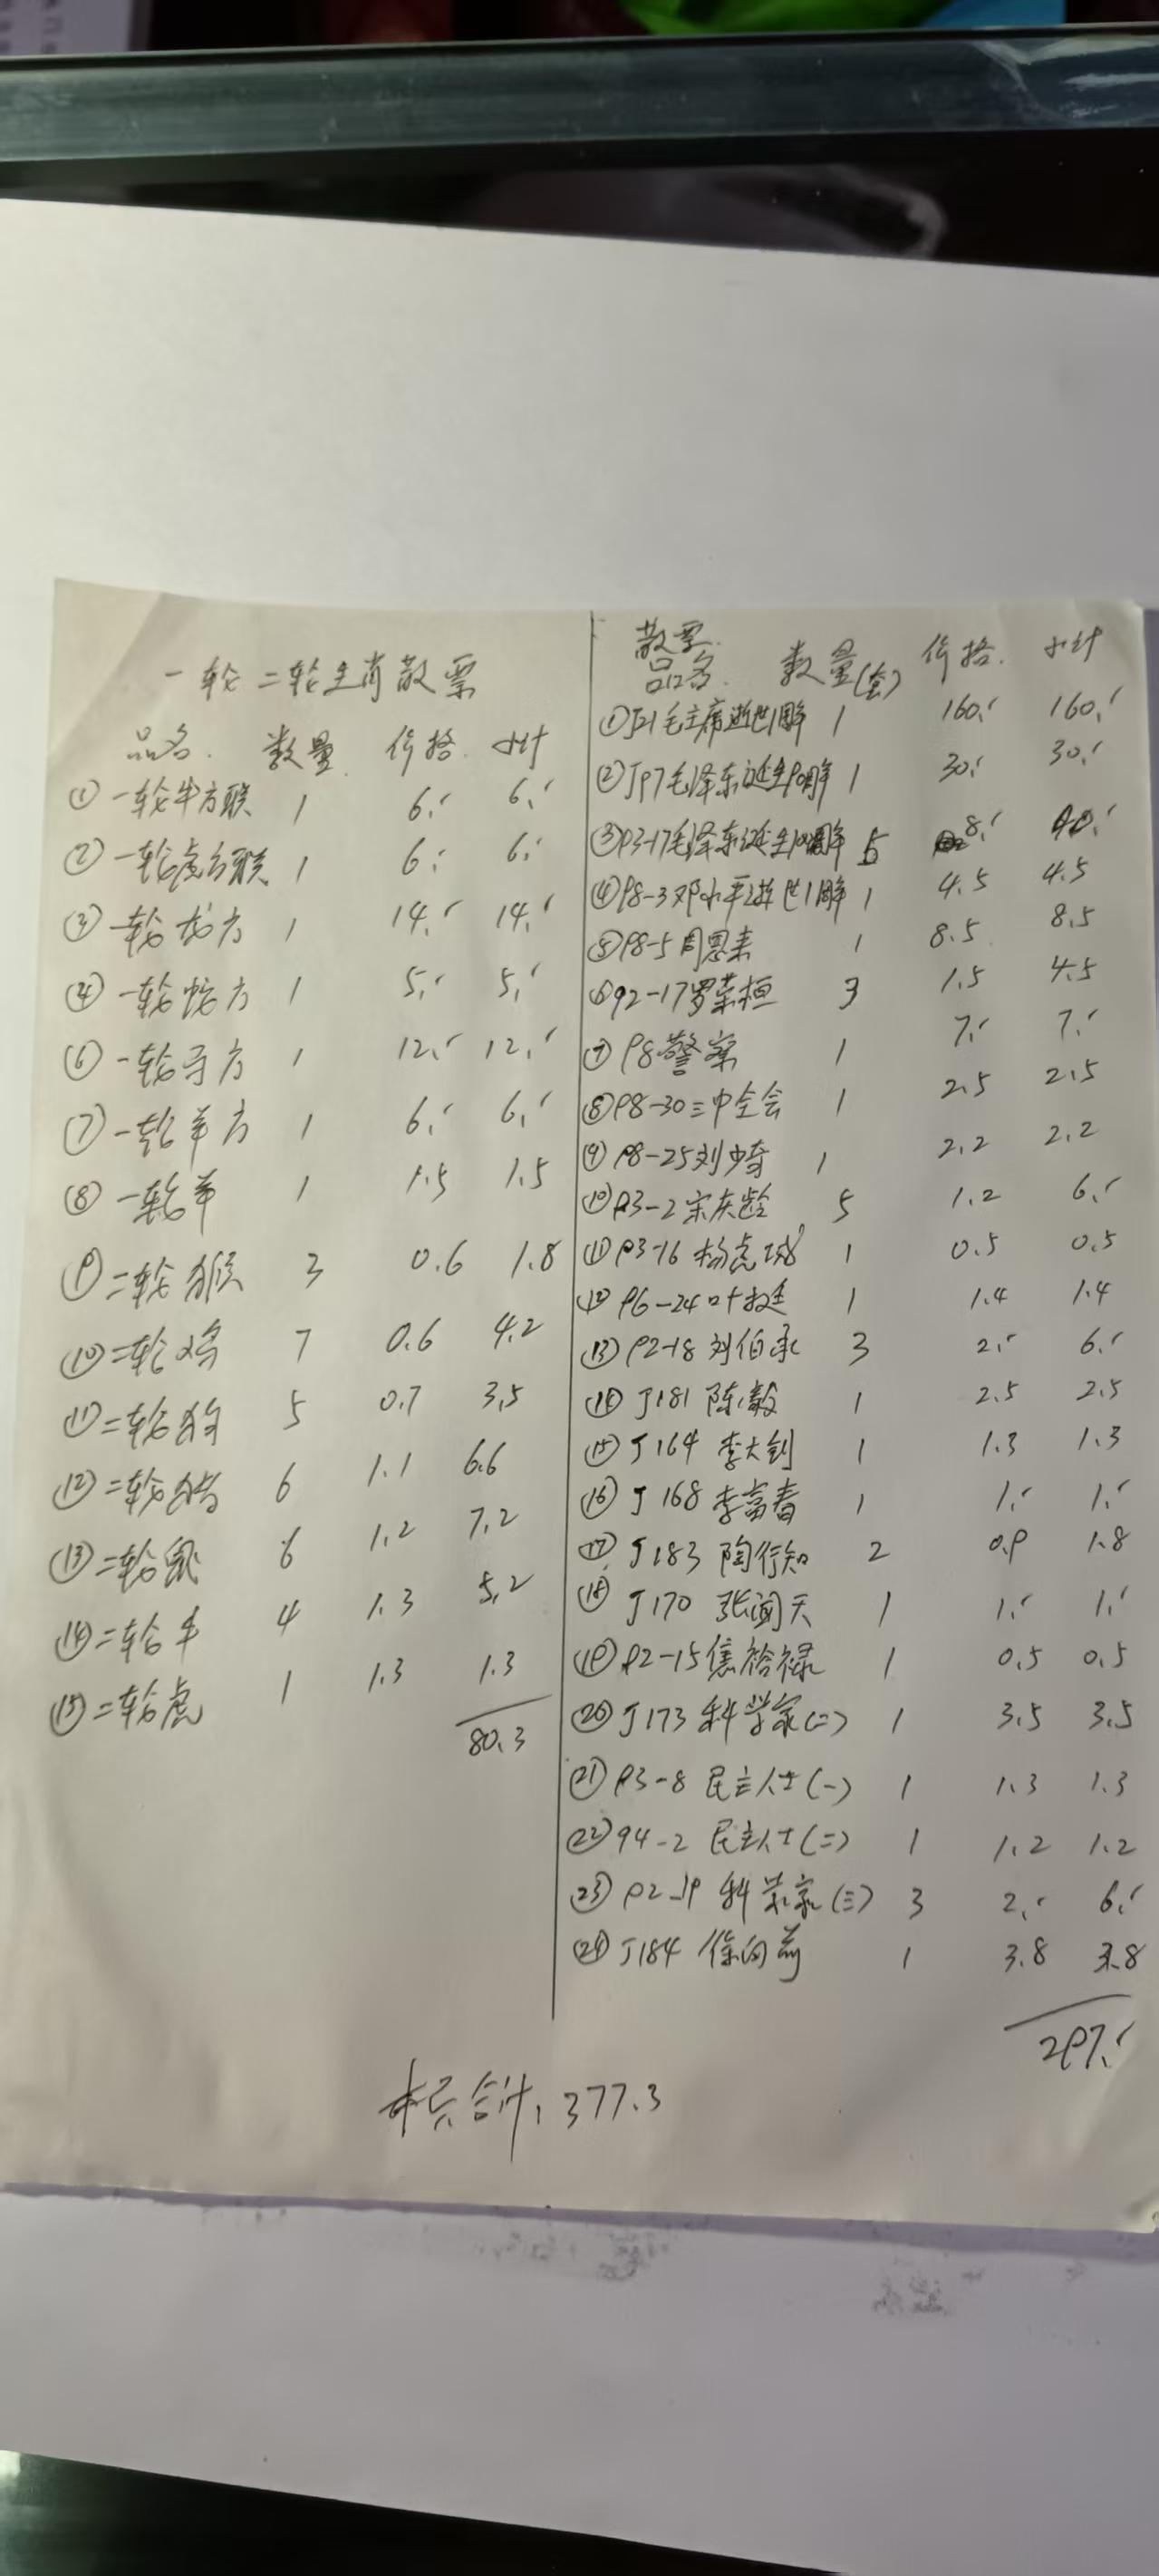 一轮二轮生肖散票
品名 数量 价格 小计
① 一轮牛方联 1 6.- 6.-
② 一轮虎方联 1 6.- 6.-
③ 一轮龙方 1 14.- 14.-
④ 一轮蛇方 1 5.- 5.-
⑥ 一轮马方 1 12.- 12.-
⑦ 一轮羊方 1 6.- 6.-
⑧ 一轮羊 1 1.5 1.5
⑨ 二轮猴 3 0.6 1.8
⑩ 二轮鸡 7 0.6 4.2
⑪ 二轮狗 5 0.7 3.5
⑫ 二轮猪 6 1.1 6.6
⑬ 二轮鼠 6 1.2 7.2
⑭ 二轮牛 4 1.3 5.2
⑮ 二轮虎 1 1.3 1.3
80.3
散票
品名 数量(套) 价格 小计
① J21毛主席逝世1周年 1 160.- 160.-
② J97毛泽东诞生90周年 1 30.- 30.-
③ 93-17毛泽东诞生100周年 5 8.- 40.-
④ 98-3邓小平逝世1周年 1 4.5 4.5
⑤ 98-5周恩来 1 8.5 8.5
⑥ 92-17罗荣桓 3 1.5 4.5
⑦ 98警察 1 7.- 7.-
⑧ 98-30三中全会 1 2.5 2.5
⑨ 98-25刘少奇 1 2.2 2.2
⑩ 93-2宋庆龄 5 1.2 6.-
⑪ 93-16杨虎城 1 0.5 0.5
⑫ 96-24叶挺 1 1.4 1.4
⑬ 92-18刘伯承 3 2.- 6.-
⑭ J181 陈毅 1 2.5 2.5
⑮ J164 李大钊 1 1.3 1.3
⑯ J168 李富春 1 1.- 1.-
⑰ J183 陶行知 2 0.9 1.8
⑱ J170 张闻天 1 1.- 1.-
⑲ 92-15焦裕禄 1 0.5 0.5
⑳ J173 科学家(二) 1 3.5 3.5
㉑ 93-8 民主人士(一) 1 1.3 1.3
㉒ 94-2 民主人士(二) 1 1.2 1.2
㉓ 92-19 科学家(三) 3 2.- 6.-
㉔ J184 徐向前 1 3.8 3.8
297.-
本页合计: 377.3